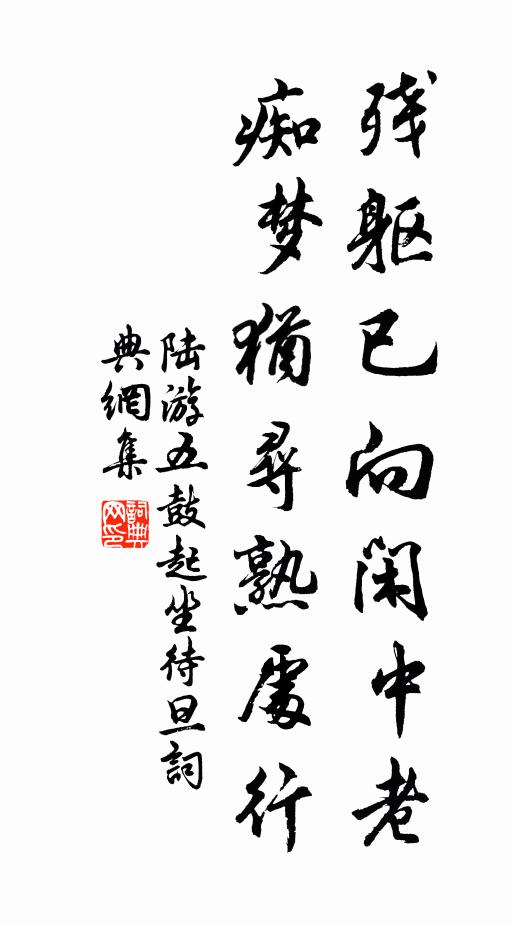 残躯已向闲中老
痴梦猶尋熟處行
陆游五鼓起坐待旦詞
典網集
詞典网印